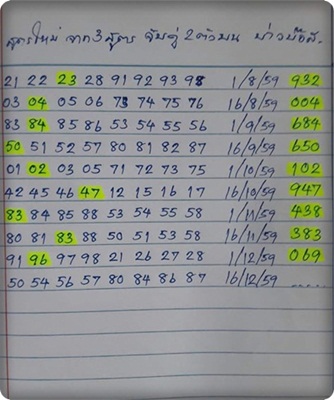 สูตรใหม่ จาก 3 สูตร จับคู่ 2 ตัวบน
21 22 23 28 91 92 93 98 1/8/59 932
03 04 05 06 73 74 75 76 16/8/59 004
83 84 85 86 53 54 55 56 1/9/59 684
50 51 52 57 80 81 82 87 16/9/59 650
01 02 03 05 71 72 73 75 1/10/59 102
42 45 46 47 12 15 16 17 16/10/59 947
83 84 85 88 53 54 55 58 1/11/59 438
80 81 83 88 50 51 53 58 16/11/59 383
91 96 97 98 21 26 27 28 1/12/59 069
50 54 56 57 80 84 86 87 16/12/59 .....